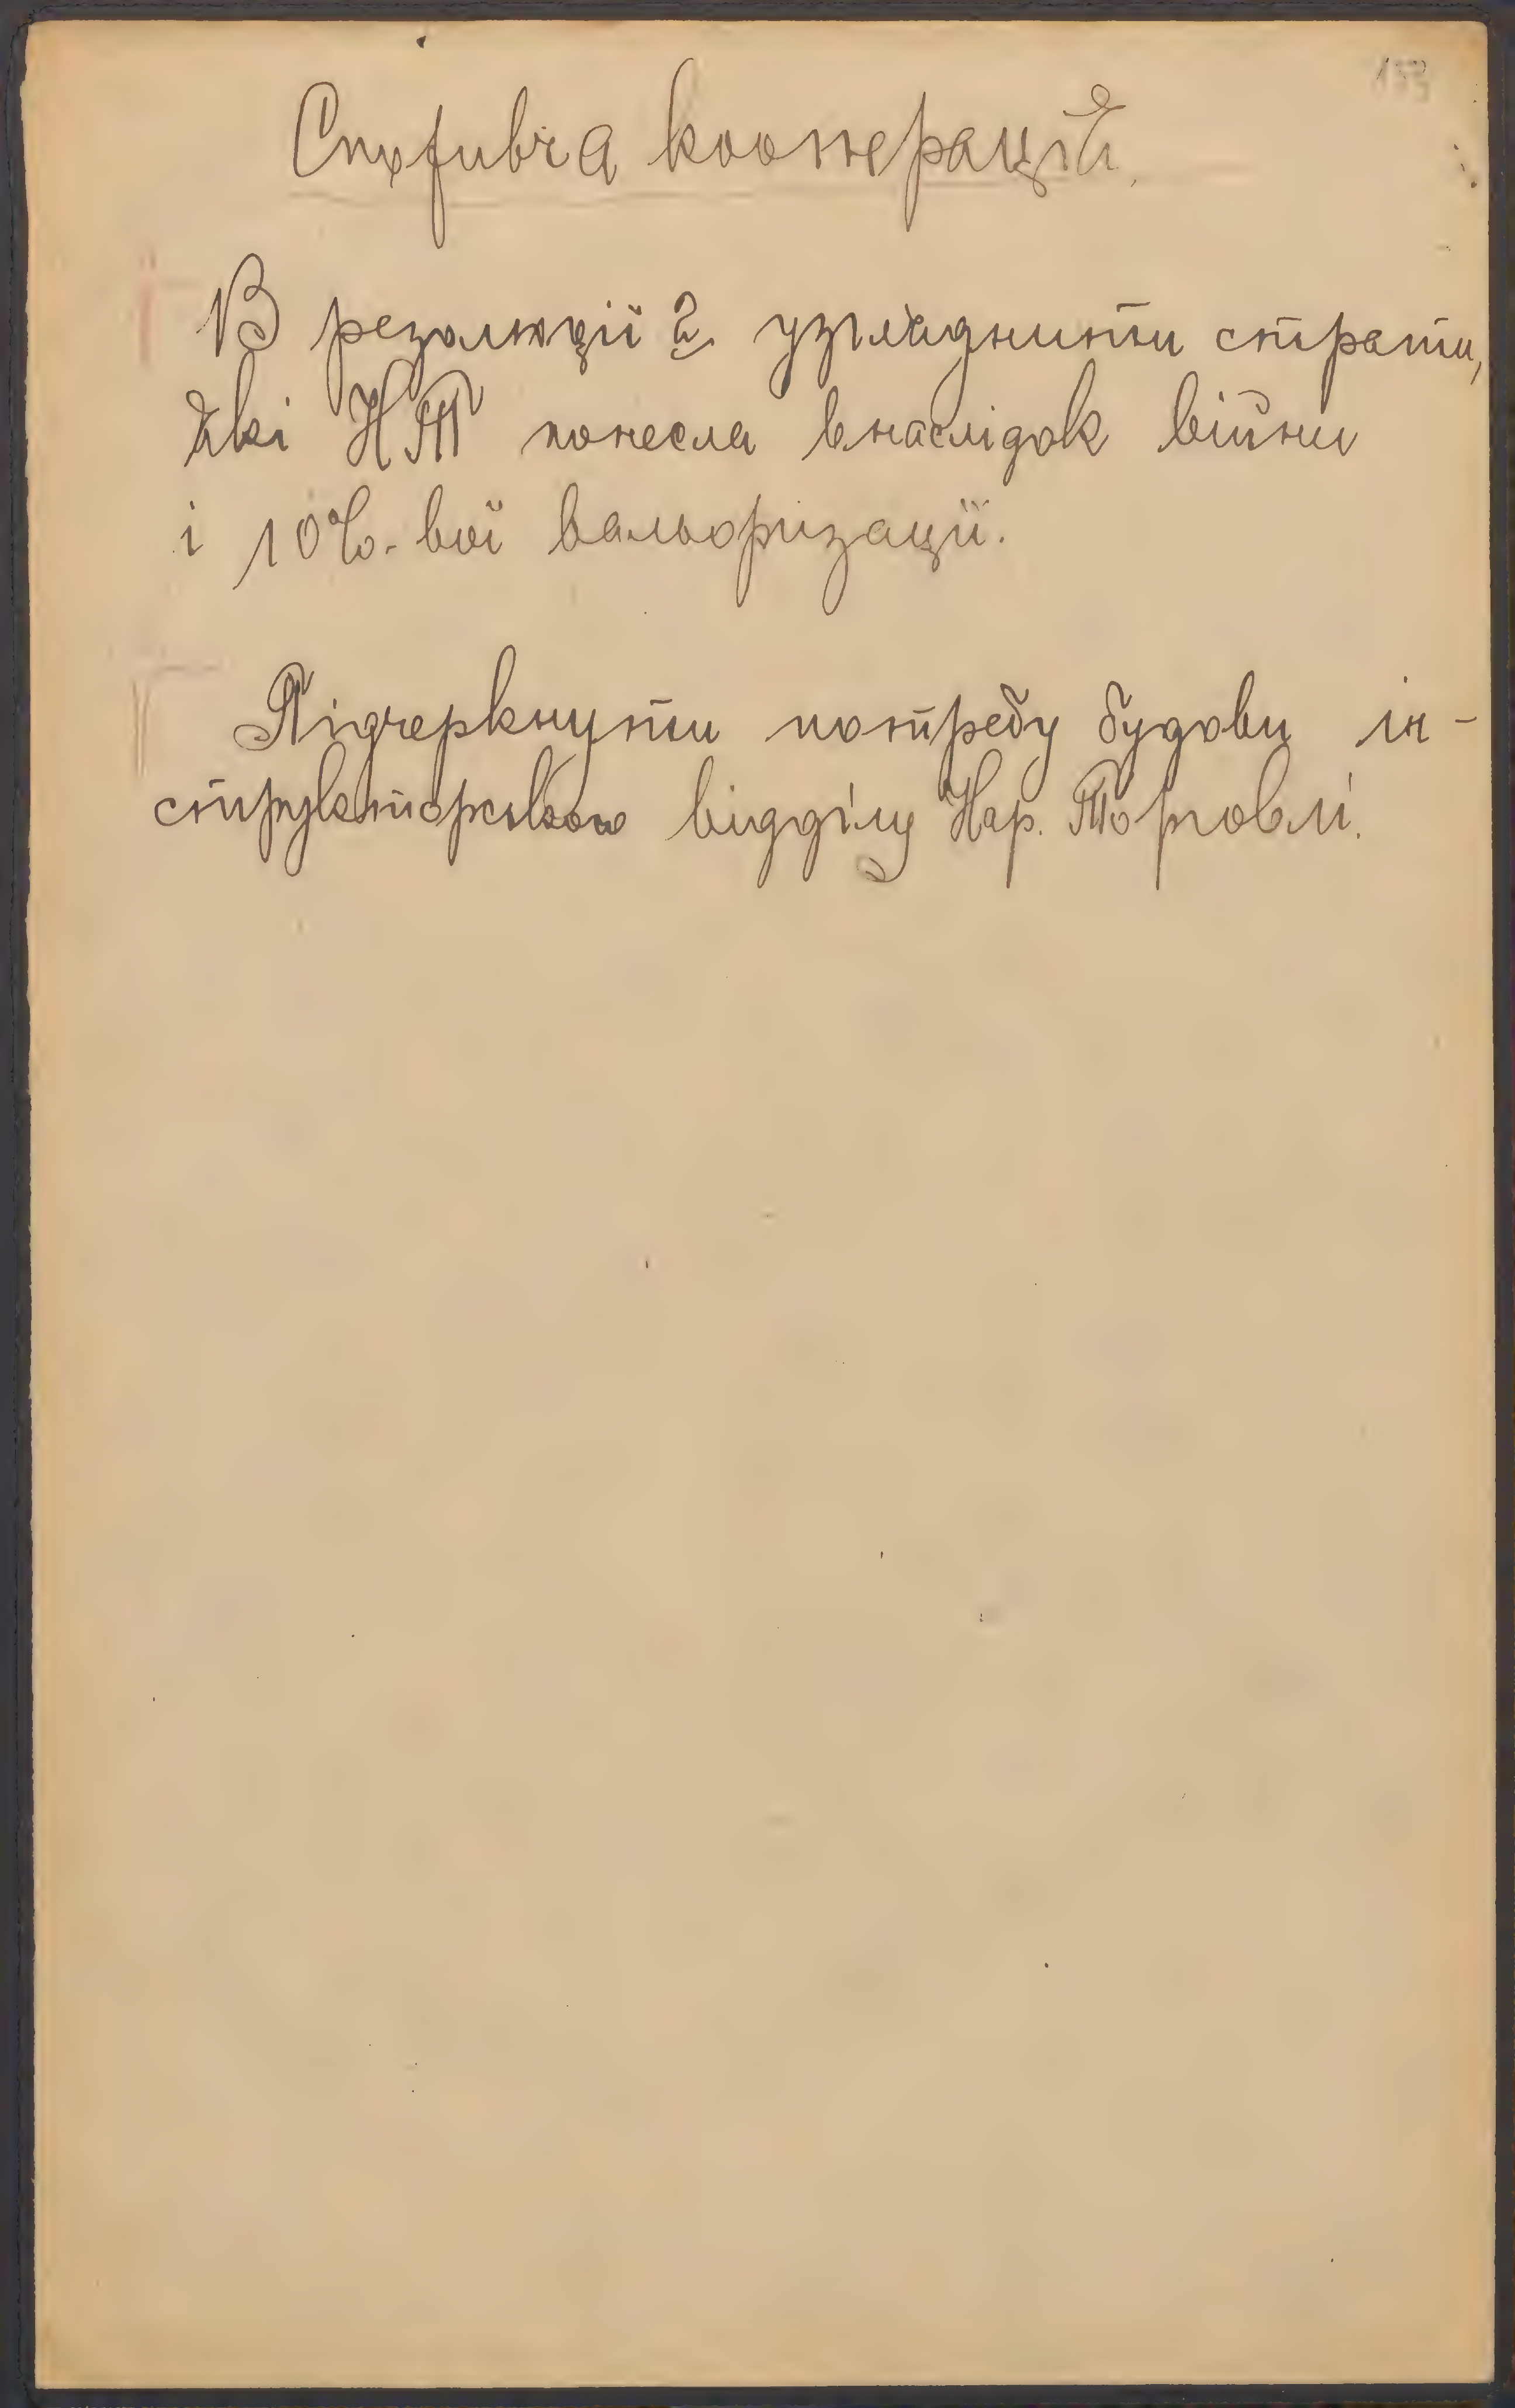 Споживча кооперація.
В резолюції 2 узгляднити страти,
які НТ понесла внаслідок війни
і 10%-вої вальоризації.
Підчеркнути потребу будови ін-
структорського відділу Нар. Торговлі.